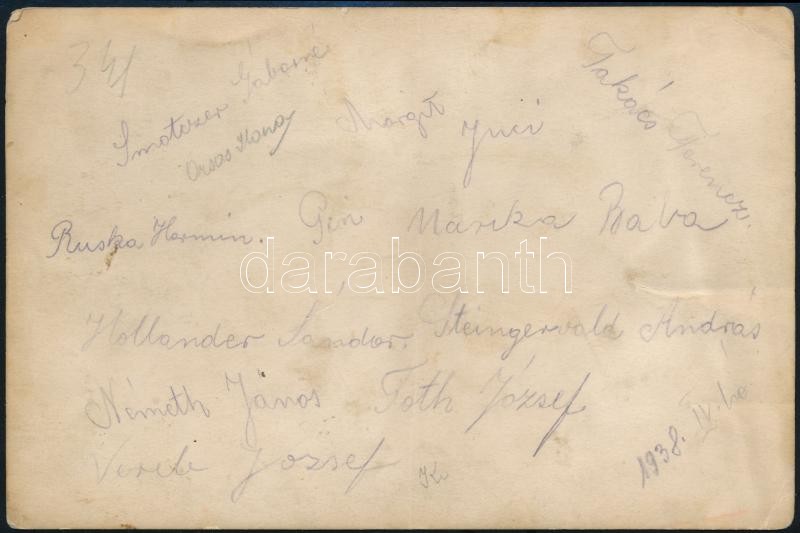 341
Smatczer Gáborné
Orsós Ilona
Margit
Juci
Takács Ferencz.
Ruska Hermin.
Piri Marika Baba
darabanth
Hollander Sándor. Steingervald András
Németh János Tóth József
József
1938. IV. hó